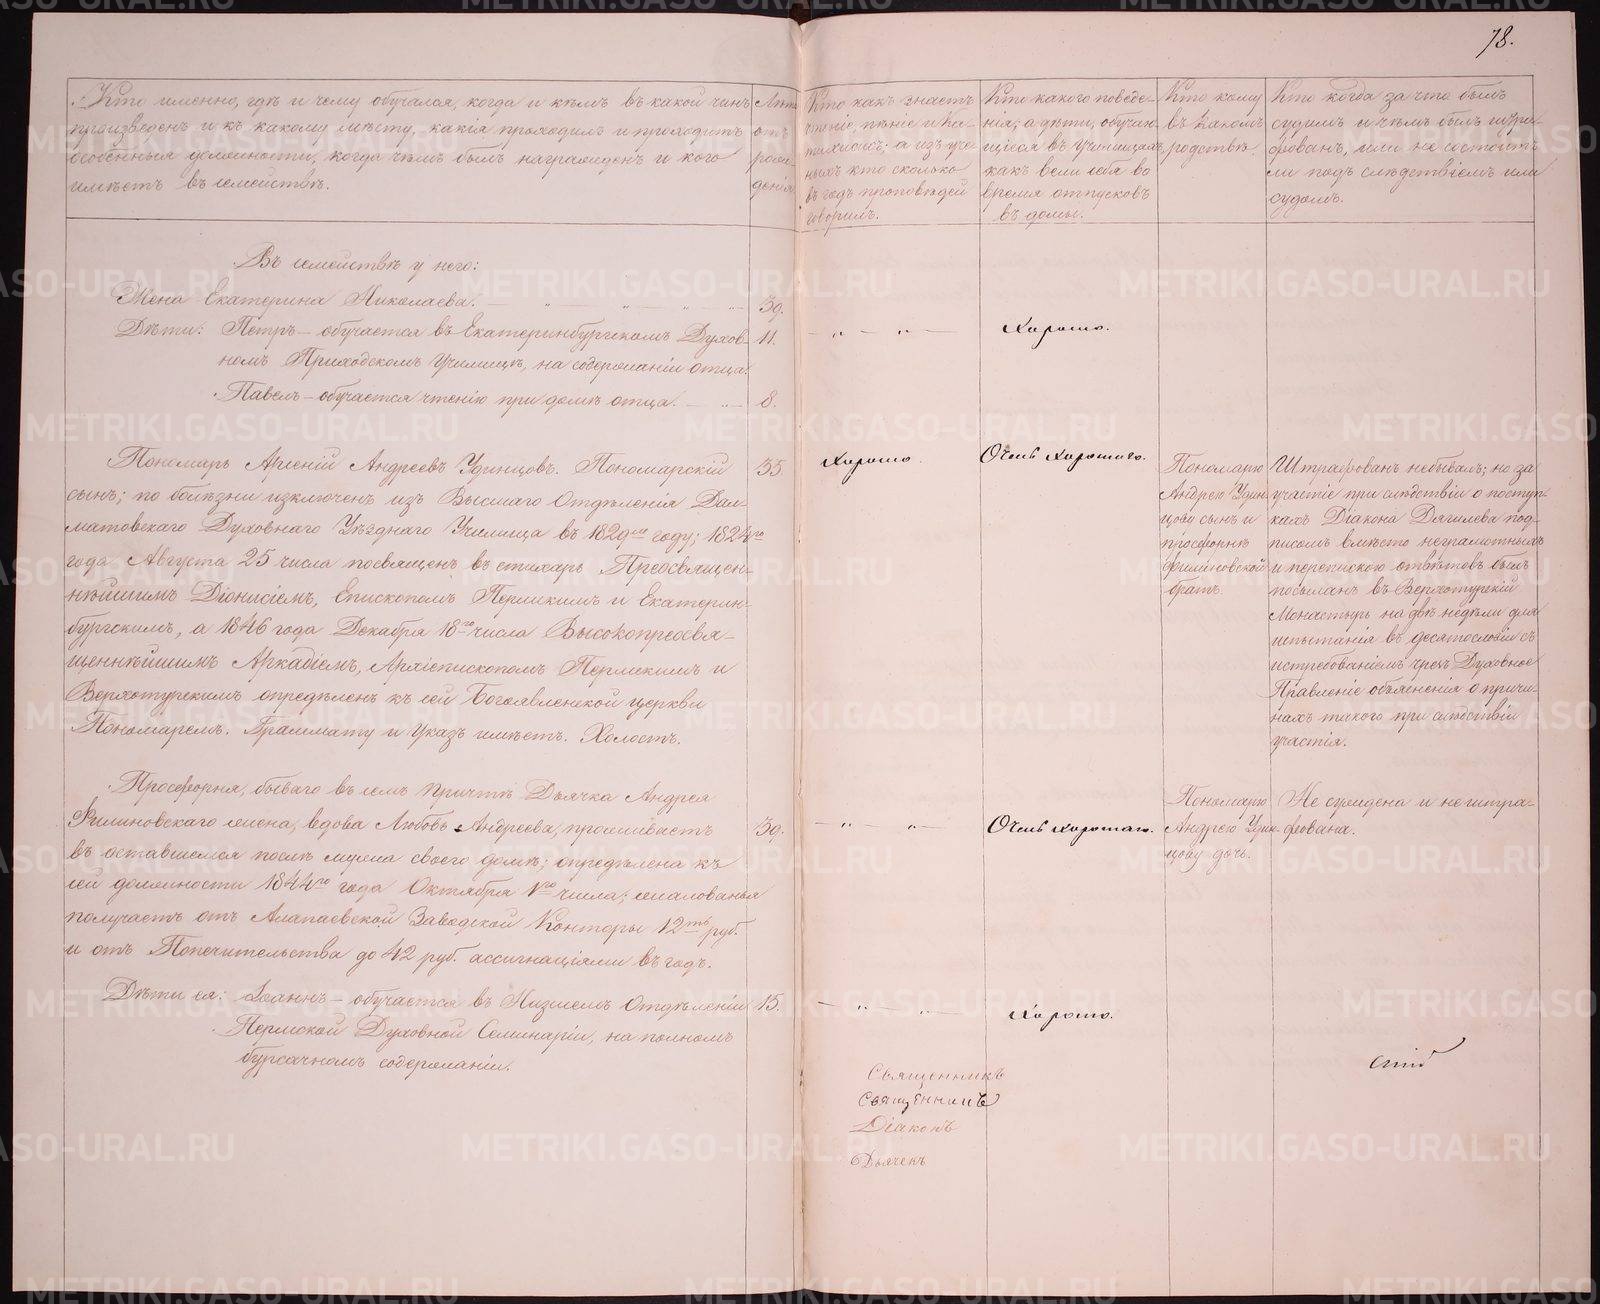 78.
Кто именно, гдѣ и чему обучался, когда и кѣмъ въ какой чинъ
произведенъ и къ какому мѣсту, какія проходилъ и проходитъ
особенныя должности, когда чѣмъ былъ награжденъ и кого
имѣетъ въ семействѣ.
Лѣта
отъ
рож-
денія
Кто какъ знаетъ
чтеніе, пѣніе и ка-
тихизисъ; а изъ уче-
ныхъ кто сколько
въ годъ проповѣдей
говорилъ.
Кто какого поведе-
нія; а дѣти, обучаю-
щіеся въ Училищахъ,
какъ вели себя во
время отпусковъ
въ домы.
Кто кому
въ какомъ
родствѣ.
Кто когда за что былъ
судимъ и чѣмъ былъ штра-
фованъ, или не состоитъ
ли подъ слѣдствіемъ или
судомъ.
Въ семействѣ у него:
Жена Екатерина Николаева. 39.
Дѣти: Петръ – обучается въ Екатеринбургскомъ Духов- 11. Хорошо.
номъ Приходскомъ Училищѣ, на содержаніи отца.
Павелъ – обучается чтенію при домѣ отца. 8.
Пономарь Арсеній Андреевъ Удинцовъ. Пономарскій 35
сынъ; по болѣзни изключенъ изъ Высшаго Отдѣленія Дал-
матовскаго Духовнаго Уѣзднаго Училища въ 1829го году; 1824го
года Августа 25 числа посвященъ въ стихарь Преосвящен-
нѣйшимъ Діонисіемъ, Епископомъ Пермскимъ и Екатерин-
бургскимъ, а 1846 года Декабря 18го числа Высокопреосвя-
щеннѣйшимъ Аркадіемъ, Архіепископомъ Пермскимъ и
Верхотурскимъ опредѣленъ къ сей Богоявленской церкви
Пономаремъ. Граммату и Указъ имѣетъ. Холостъ.
Хорошо.
Очень хорошаго.
Пономарю
Андрею Удин-
цову сынъ и
просфорнѣ
Филиновской
братъ.
Штрафованъ небывалъ; но за
участіе при слѣдствіи о поступ-
кахъ Діакона Дягилева под-
писомъ вмѣсто неграмотныхъ
и перепискою отвѣтовъ былъ
посыланъ въ Верхотурскій
Монастырь на двѣ недѣли для
испытанія въ десятословіи съ
истребованіемъ чрезъ Духовное
Правленіе объясненія о причи-
нахъ такого при слѣдствіи
участія.
Просфорня, бываго въ семъ причтѣ Дьячка Андрея
Филиновскаго жена, вдова Любовь Андреева, проживаетъ 39.
въ оставшемся послѣ мужа своего домѣ; опредѣлена къ
сей должности 1844го года Октября 1го числа; жалованья
получаетъ отъ Алапаевской Заводской Конторы 12ть руб.
и отъ Попечительства до 42 руб. ассигнаціями въ годъ.
Очень хорошаго.
Пономарю
Андрею Удин-
цову дочь.
Не суждена и не штра-
фована.
Дѣти ея: Іоаннъ – обучается въ Низшемъ Отдѣленіи 15. Хорошо.
Пермской Духовной Семинаріи, на полномъ
бурсачномъ содержаніи.
Священникъ
Священникъ
Діаконъ
Дьячекъ
METRIKI.GASO-URAL.RU